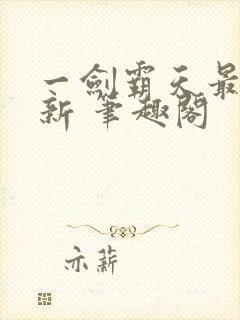 一劍霸天最
新 筆趣閣
亦薪